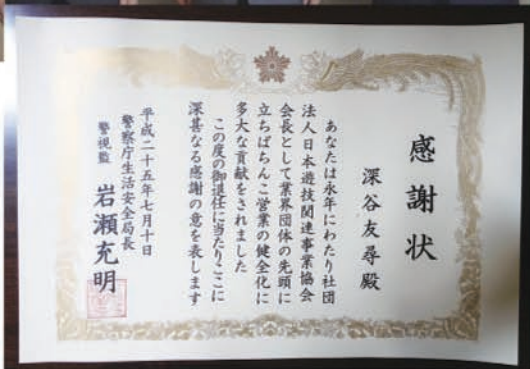 感謝状
深谷友尋殿
あなたは永年にわたり社団
法人日本遊技関連事業協会
会長として業界団体の先頭に
立ちぱちんこ営業の健全化に
多大な貢献をされました
この度の御退任に当たりここに
深甚なる感謝の意を表します
平成二十五年七月十日
警察庁生活安全局長
警視監 岩瀬充明